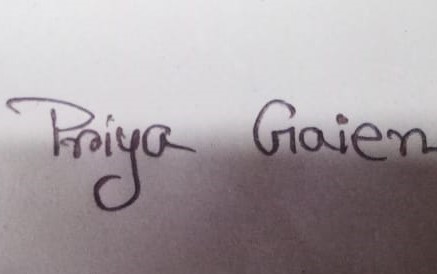 Priya Gaien